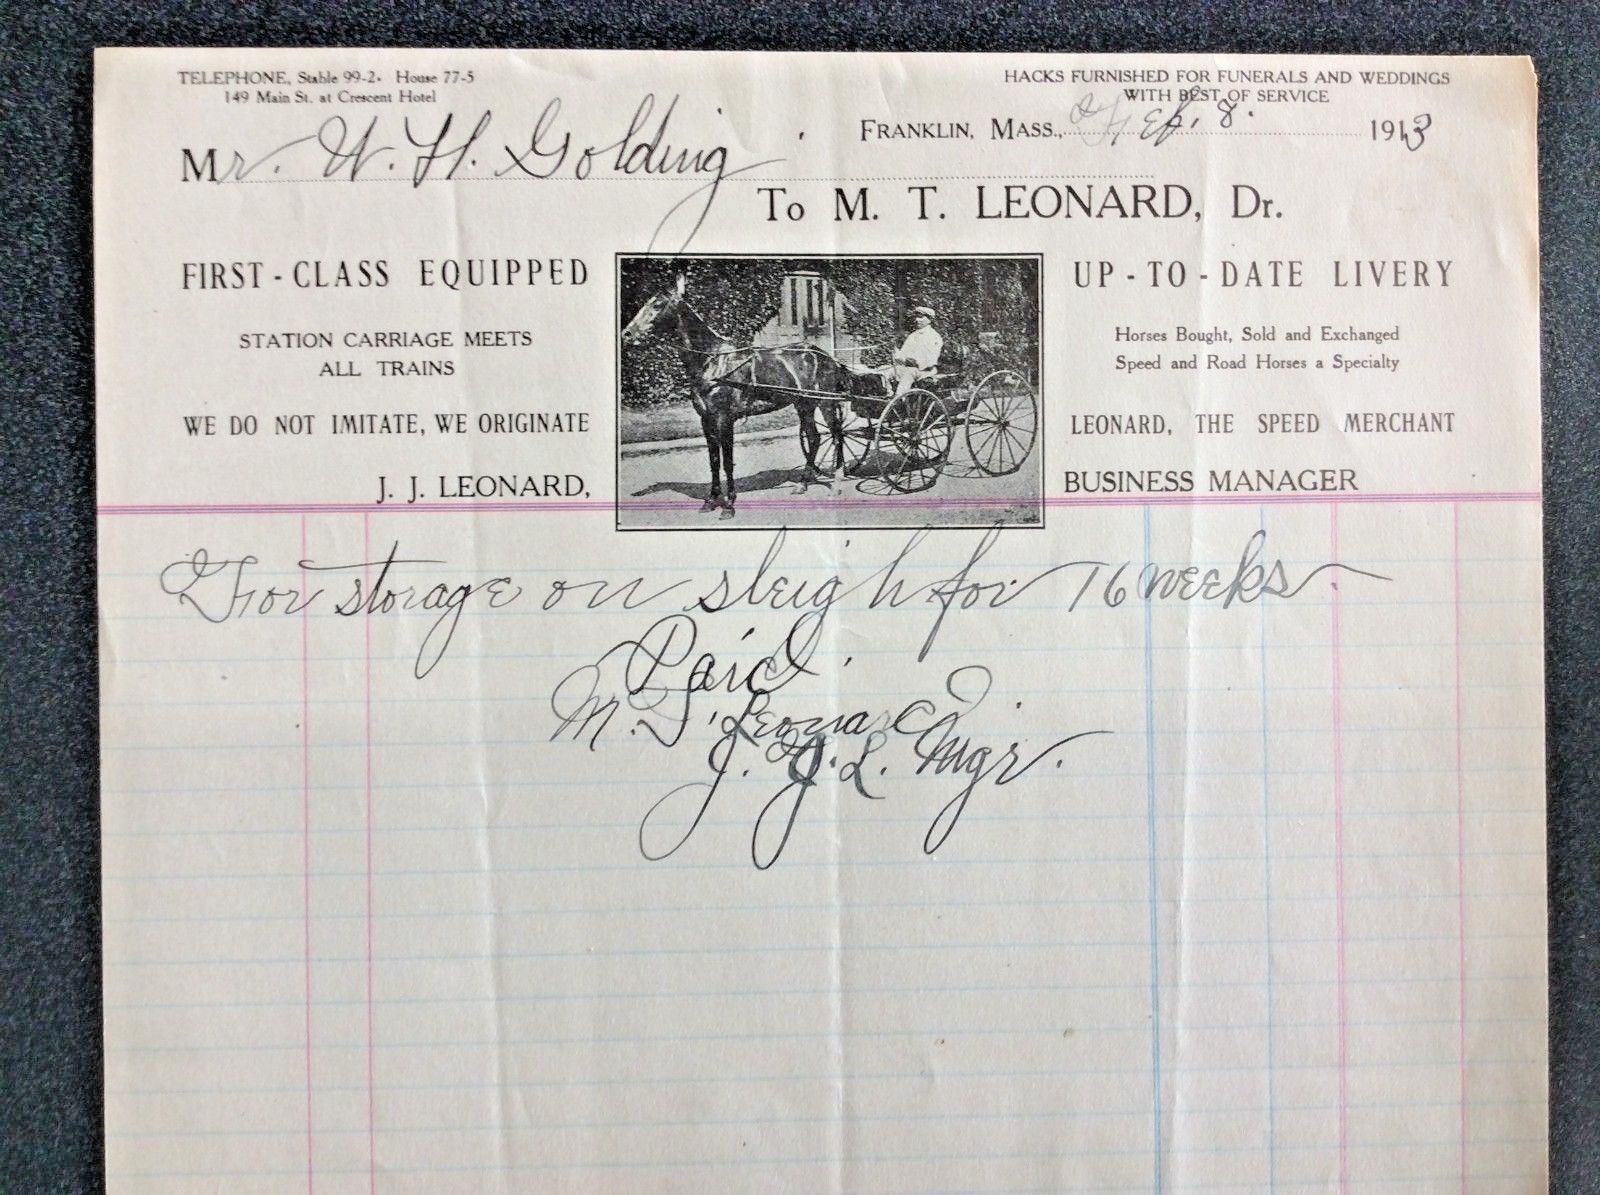 TELEPHONE, Stable 99-2. House 77-5
149 Main St. at Crescent Hotel
HACKS FURNISHED FOR FUNERALS AND WEDDINGS
WITH BEST OF SERVICE
FRANKLIN, MASS., Feb. 8. 1913
Mr. W. H. Golding
To M. T. LEONARD, Dr.
FIRST-CLASS EQUIPPED
UP-TO-DATE LIVERY
STATION CARRIAGE MEETS
ALL TRAINS
Horses Bought, Sold and Exchanged
Speed and Road Horses a Specialty
WE DO NOT IMITATE, WE ORIGINATE
LEONARD, THE SPEED MERCHANT
J. J. LEONARD, BUSINESS MANAGER
For storage on sleigh for 16 weeks.
Paid.
M. T. Leonard.
J. J. L. Mgr.